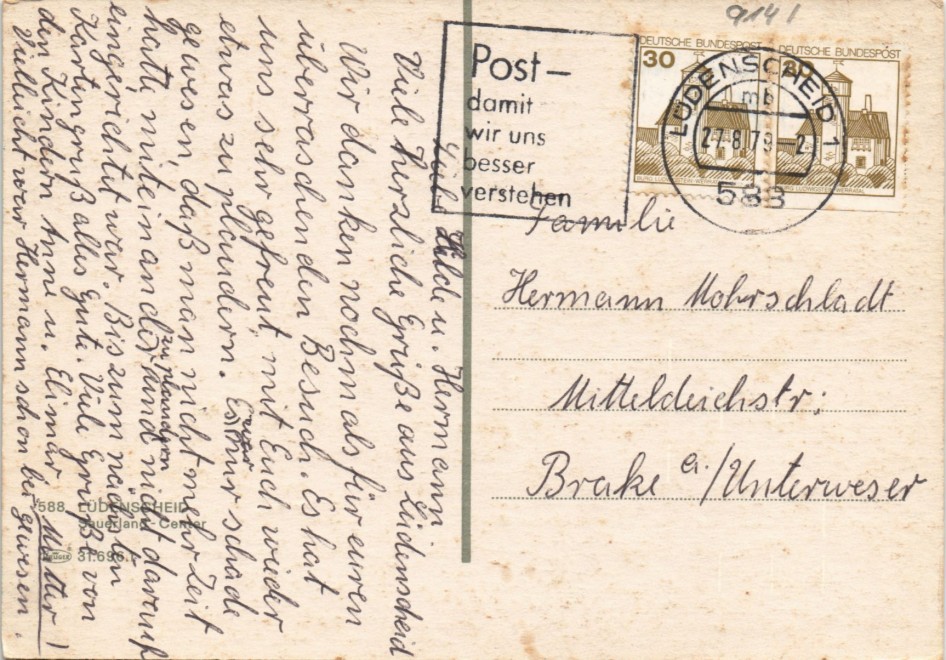 9141
Post–
damit
wir uns
besser
verstehen
DEUTSCHE BUNDESPOST
30
DEUTSCHE BUNDESPOST
30
LÜDENSCHEID 1
mb
27.-8.79
588
Familie
Hermann Mohrschladt
Mitteldeichstr.
Brake /Unterweser
Liebe Hilde u. Hermann
Viele herzliche Grüße aus Lüdenscheid
Wir danken nochmals für euren
überraschenden Besuch. Es hat
uns sehr gefreut, mit Euch wieder
etwas zu plaudern. Es war nur schade
gewesen, daß man nicht mehr Zeit
hatte miteinander zu plaudern und nicht darauf
eingerichtet war. Bis zum nächsten
Kartengruß alles Gute. Viele Grüße von
den Kindern Anne u. Elimar
Vielleicht war Hermann schon bei Mutter!
gewesen.
588 LÜDENSCHEID
Sauerland-Center
31.696